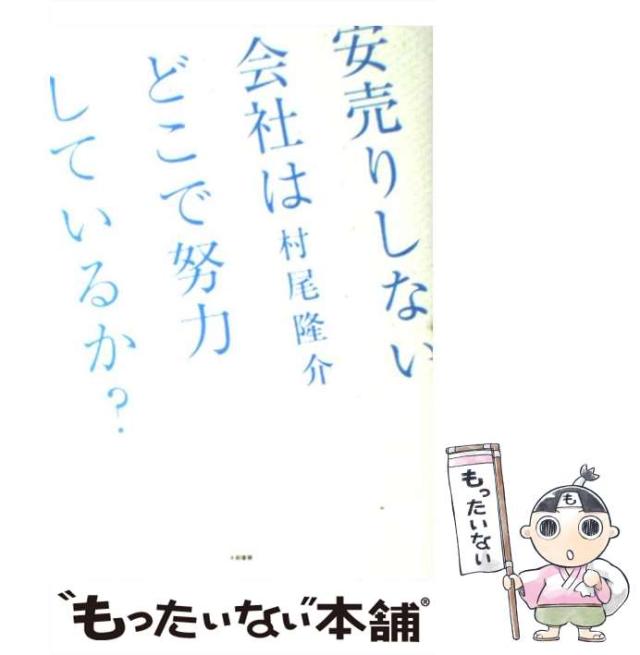 安売りしない
会社は
村尾隆介
どこで努力
しているか?
もったいない
も
"もったいない"本舗®